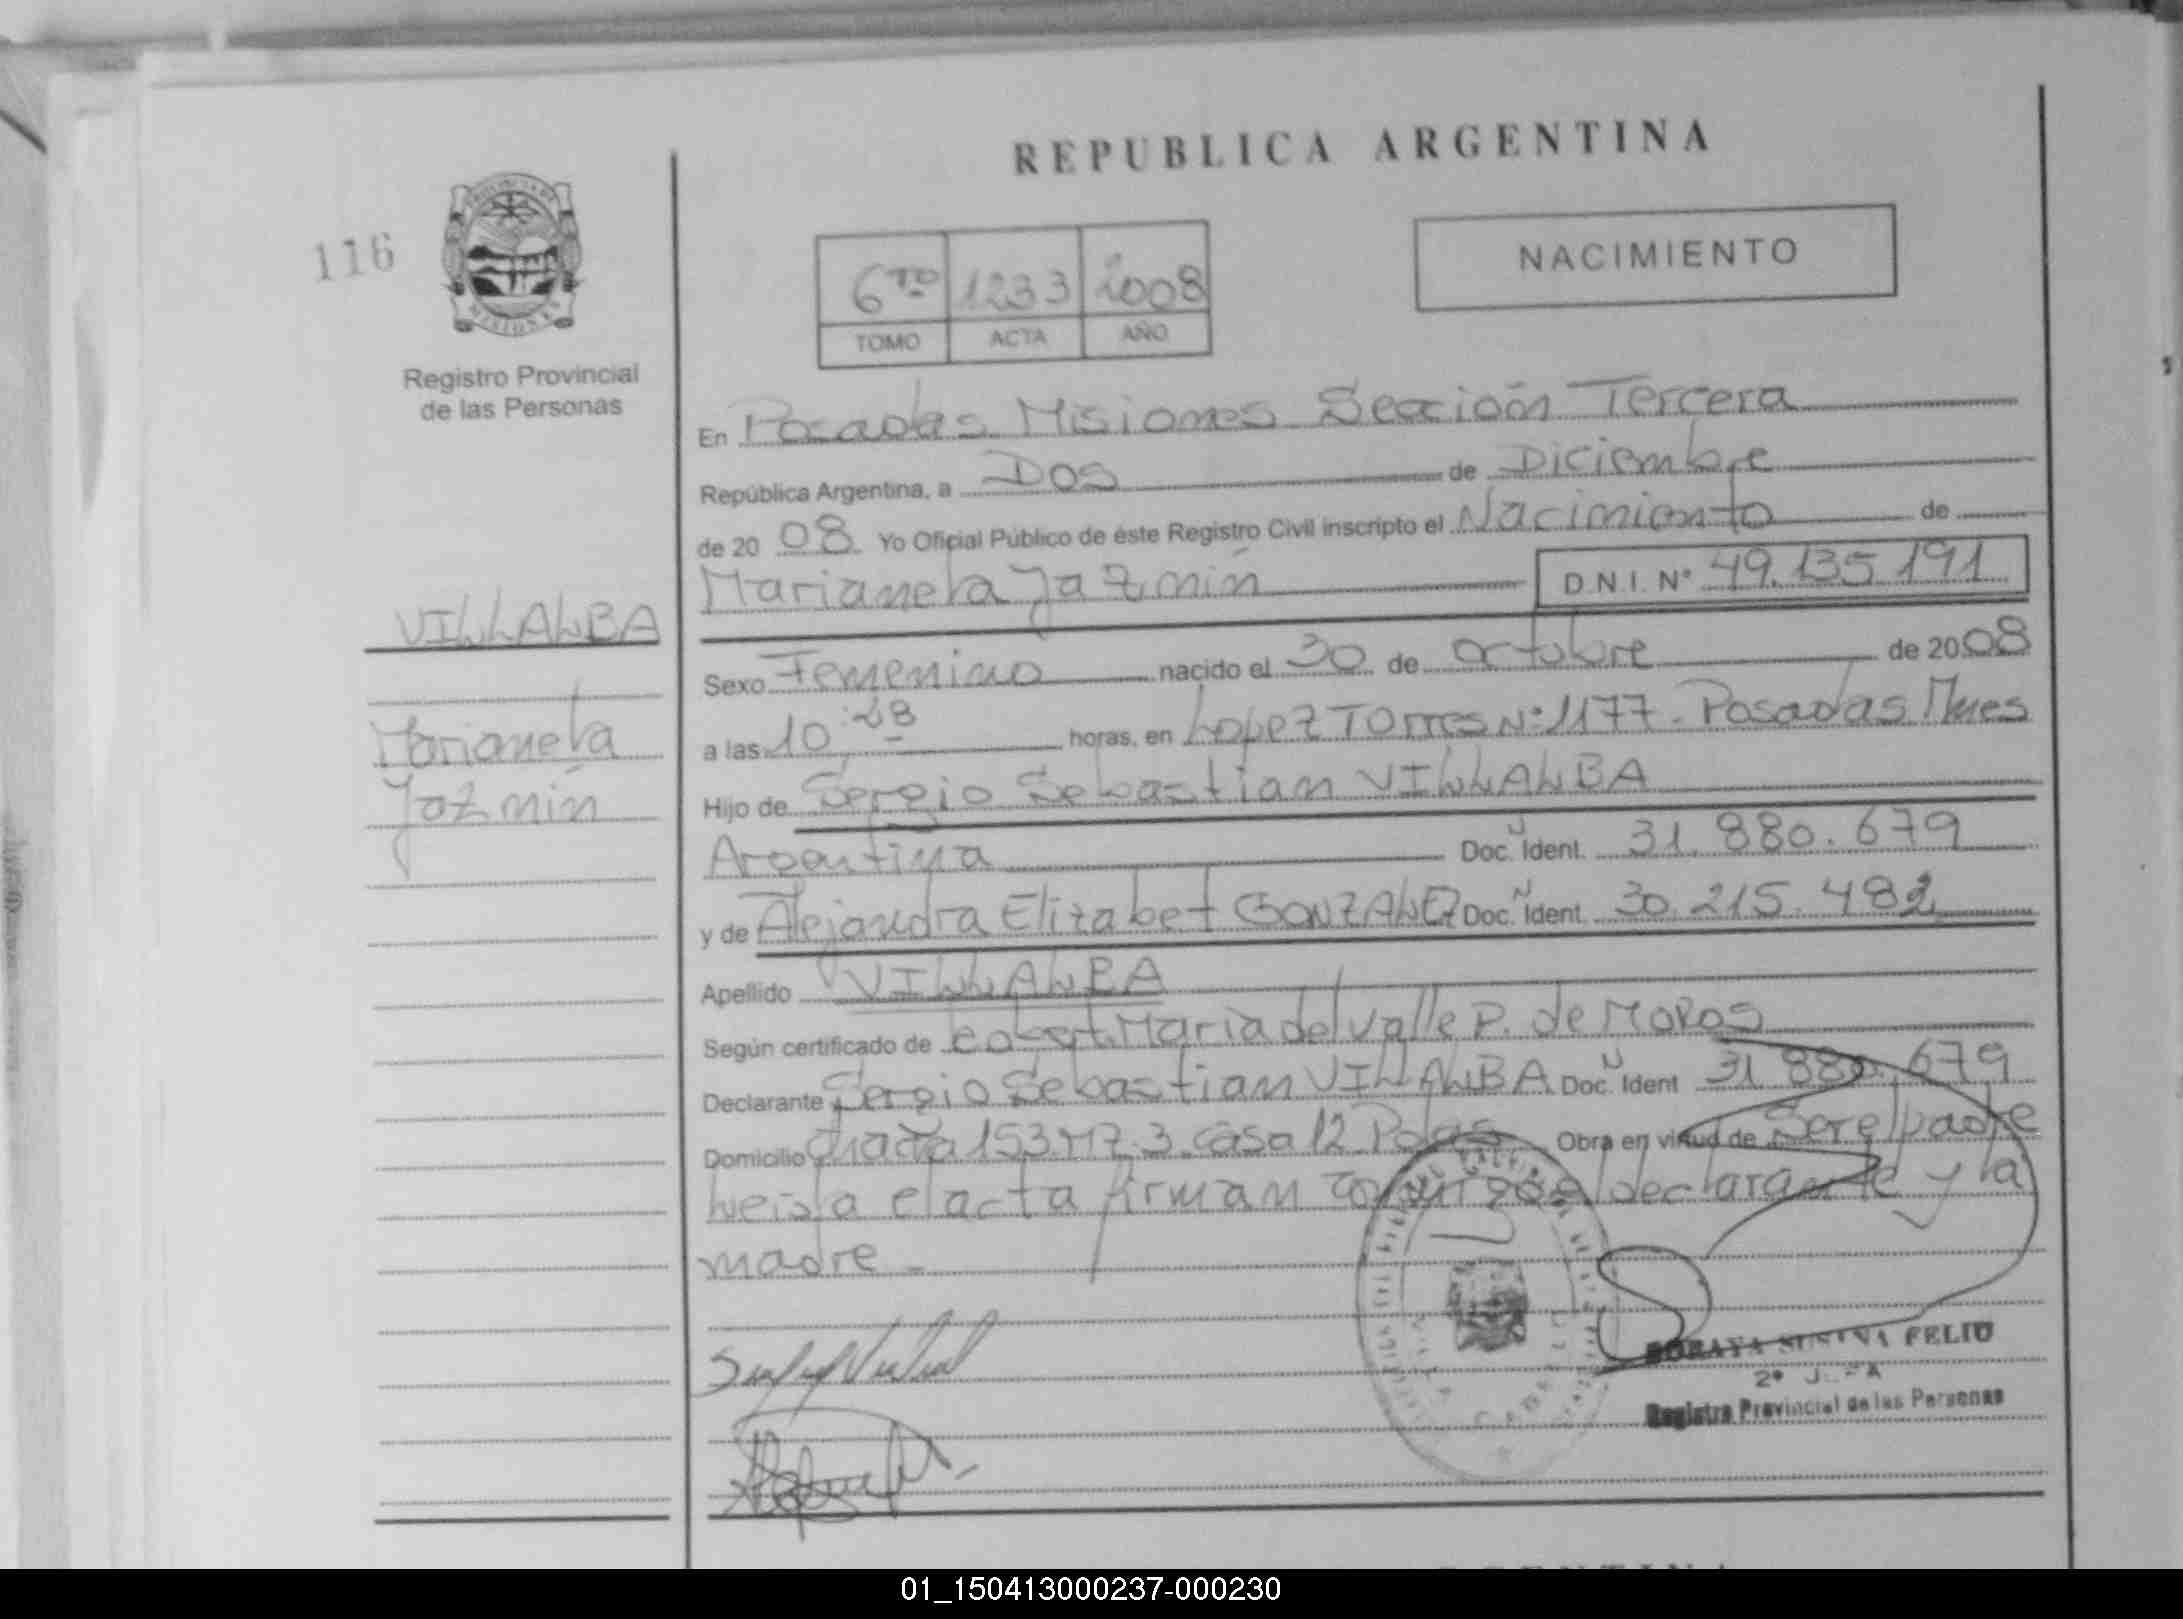 REPUBLICA ARGENTINA
116
NACIMIENTO
6TO 1233 2008
TOMO ACTA AÑO
Registro Provincial
de las Personas
En Posadas Misiones Sección Tercera
República Argentina, a Dos de Diciembre
de 2008 Yo Oficial Público de éste Registro Civil inscripto el Nacimiento de
Marianela Jazmín D.N.I. Nº 49.135.191
VILLALBA
Sexo Femenino nacido el 30 de octubre de 2008
Marianela
a las 10:28 horas, en Lopez Torres Nº 1177. Posadas Mnes
Jazmín
Hijo de Sergio Sebastian VILLALBA
Argentina Doc. Ident. 31.880.679
y de Alejandra Elizabet GONZALEZ Doc. Ident. 30.215.482
Apellido VILLALBA
Según certificado de Maria del Valle P. de MOROS
Declarante Sergio Sebastian VILLALBA Doc. Ident 31.880.679
Domicilio 153 MZ. 3 casa 12 Pdas Obra en virtud de Ser el padre
Leida el acta firman conmigo el declarante y la
madre.
SORAYA SUSANA FELIU
2º JEFA
Registro Provincial de las Personas
01_150413000237-000230